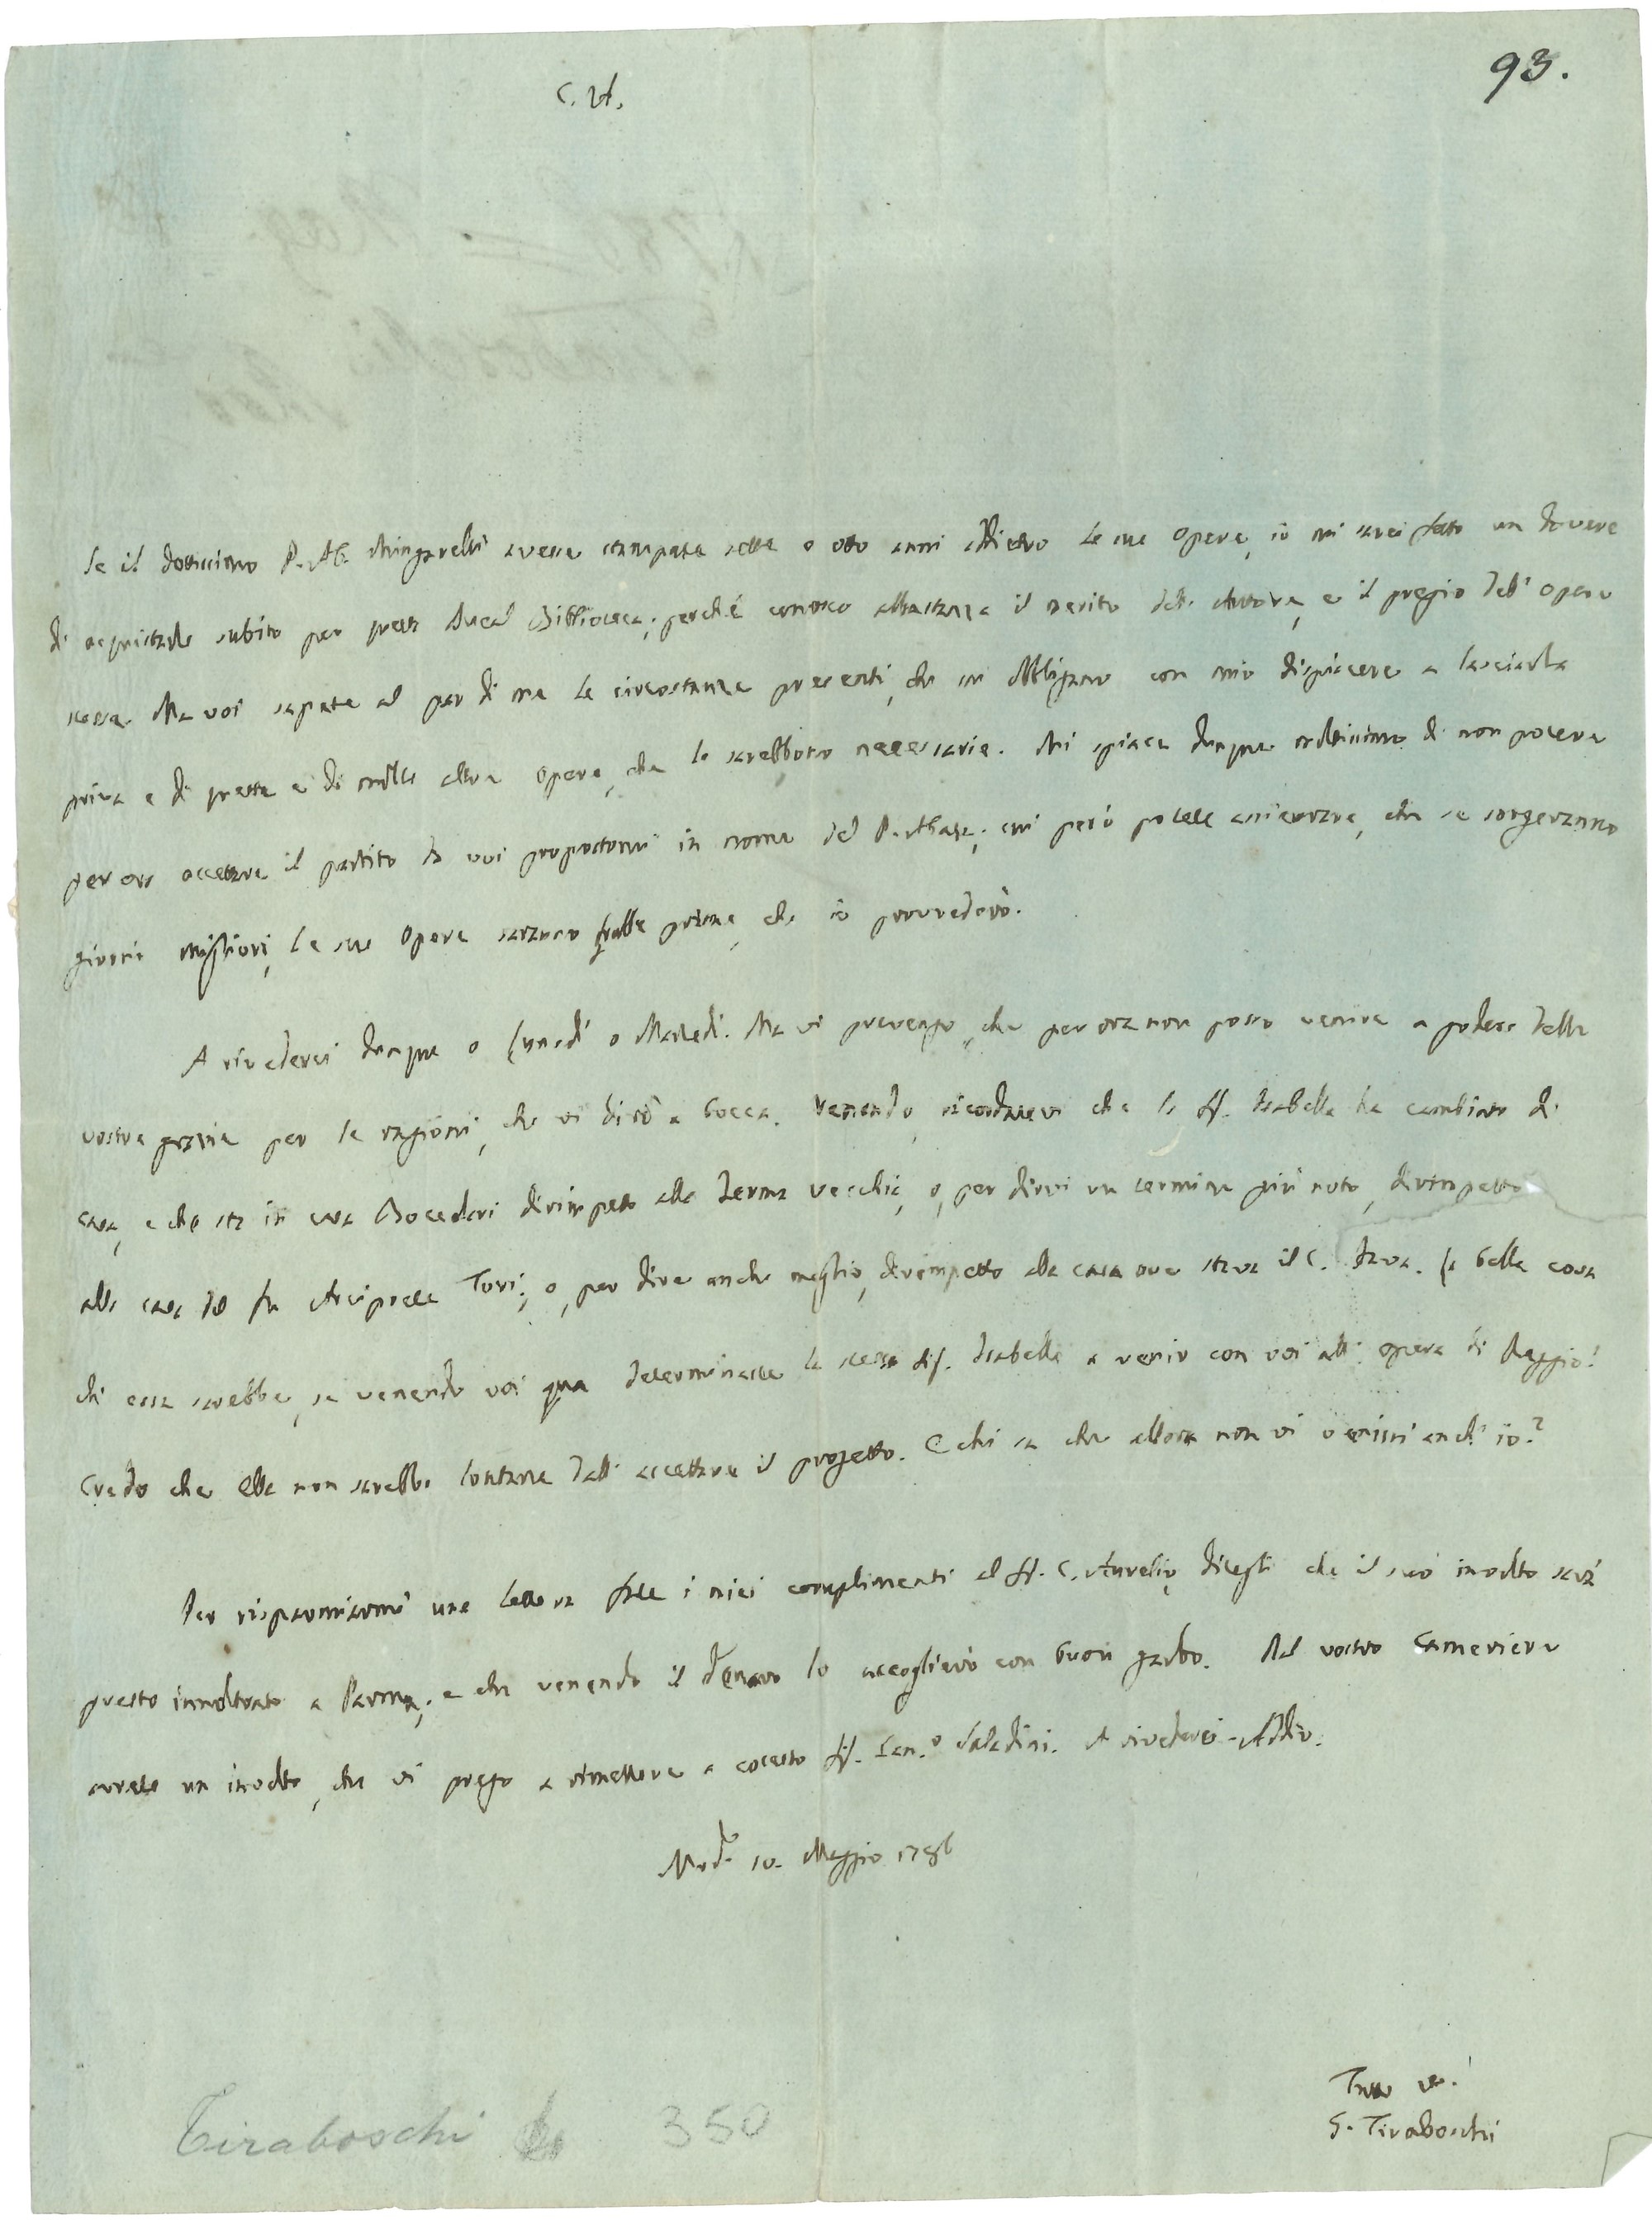 93.
C. A.
Se il dottissimo P. Ab. Mingarelli avesse stampate sette o otto anni addietro le sue opere, io mi sarei fatto un dovere
di acquistarle subito per questa Ducal Biblioteca; perchè conosco abbastanza il merito dell' Autore, e il pregio dell' opere
stesse. Ma voi sapete al par di me le circostanze presenti, che mi obbligano con mio dispiacere a lasciarla
priva e di queste e di mille altre opere, che le sarebbono necessarie. Mi spiace dunque moltissimo di non potere
per ora accettare il partito da voi propostomi in nome del P. Abate; cui però potete assicurare, che se sorgeranno
giorni migliori, le sue opere saranno fralle prime, che io provvederò.
A rivederci dunque o Lunedì o Martedì. Ma vi prevengo, che per ora non posso venire a godere delle
vostre grazie per le ragioni, che vi dirò a bocca. Venendo, ricordatevi che la Sig. Isabella ha cambiato di
casa, e che sta in casa Bocedari dirimpetto alla Zerma vecchia, o, per dirvi un termine più noto, dirimpetto
alla casa del fu Arciprete Tori; o, per dire anche meglio, dirimpetto alla casa ove stava il C. Fava. La bella cosa
che essa sarebbe, se venendo voi qua determinaste la stessa Sig. Isabella a venir con voi all' opera di Reggio!
Credo che ella non sarebbe lontana dall' accettare il progetto. E chi sa che allora non vi venissi anch' io?
Per risparmiarmi una lettera fate i miei complimenti al Sig. C. Aurelio, ditegli che il suo involto sarà
presto innoltrato a Parma; e che venendo il denaro lo accoglierò con buon garbo. Dal vostro Cameriere
avrete un involto, che vi prego a rimettere a cotesto Sig. Can.o Saladini. A rivederci. Addio.
Mod.a 10. Maggio 1786
Tutto v.o
G. Tiraboschi
Tiraboschi 350